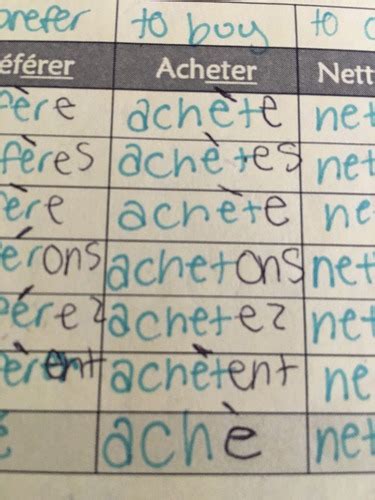 prefer to buy to c
éférer Acheter Nett
ère achète net
fères achètes net
ère achète ne
érons achetons net
érez achetez net
èrent achètent ne
é achè net